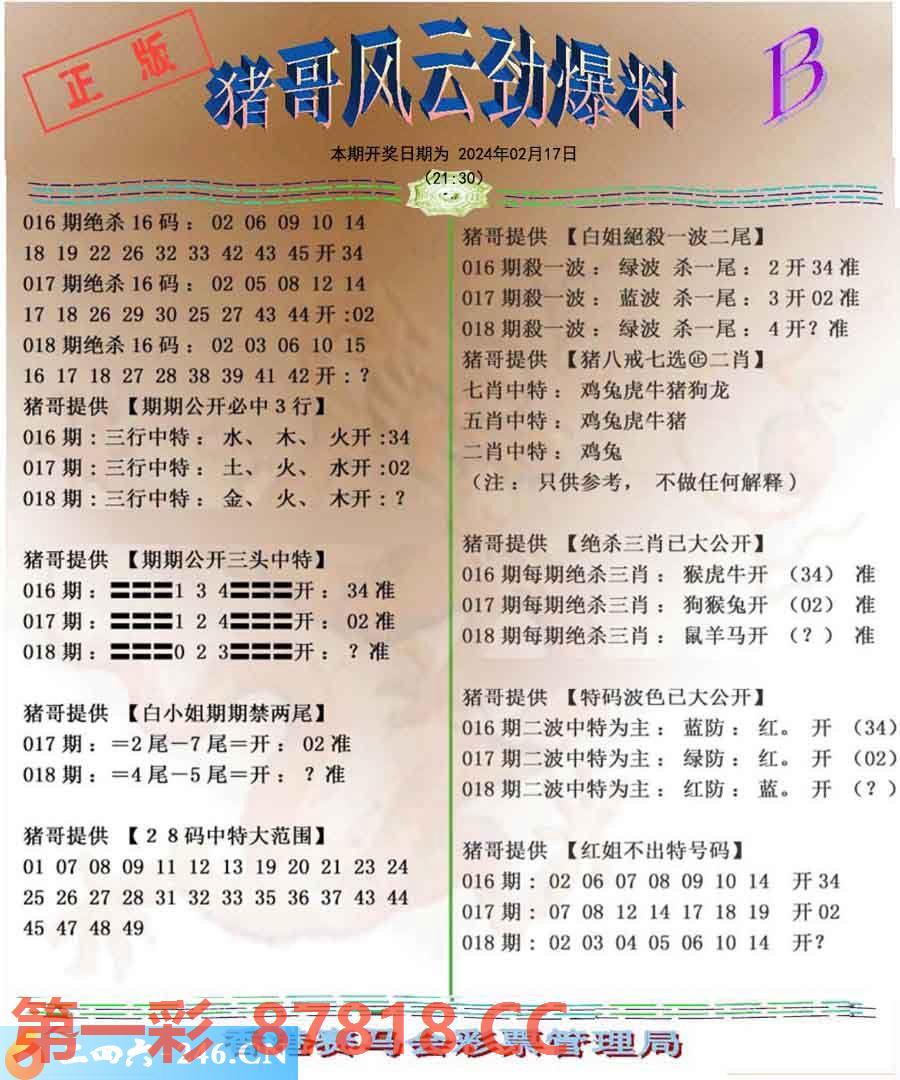 正版
猪哥风云劲爆料
B
本期开奖日期为 2024年02月17日
(21:30)
016期绝杀16码: 02 06 09 10 14
18 19 22 26 32 33 42 43 45开34
017期绝杀16码: 02 05 08 12 14
17 18 26 29 30 25 27 43 44开:02
018期绝杀16码: 02 03 06 10 15
16 17 18 27 28 38 39 41 42开:?
猪哥提供 【期期公开必中3行】
016期:三行中特: 水、 木、 火开:34
017期:三行中特: 土、 火、 水开:02
018期:三行中特: 金、 火、 木开:?
猪哥提供 【期期公开三头中特】
016期: 〓〓〓1 3 4〓〓〓开: 34准
017期: 〓〓〓1 2 4〓〓〓开: 02准
018期: 〓〓〓0 2 3〓〓〓开: ?准
猪哥提供 【白小姐期期禁两尾】
017期:=2尾-7尾=开: 02准
018期:=4尾-5尾=开: ?准
猪哥提供 【28码中特大范围】
01 07 08 09 11 12 13 19 20 21 23 24
25 26 27 28 31 32 33 35 36 37 43 44
45 47 48 49
猪哥提供 【白姐絕殺一波二尾】
016期殺一波: 绿波 杀一尾: 2开34准
017期殺一波: 蓝波 杀一尾: 3开02准
018期殺一波: 绿波 杀一尾: 4开?准
猪哥提供 【猪八戒七选㊣二肖】
七肖中特: 鸡兔虎牛猪狗龙
五肖中特: 鸡兔虎牛猪
二肖中特: 鸡兔
(注: 只供参考, 不做任何解释)
猪哥提供 【绝杀三肖已大公开】
016期每期绝杀三肖: 猴虎牛开 (34) 准
017期每期绝杀三肖: 狗猴兔开 (02) 准
018期每期绝杀三肖: 鼠羊马开 (?) 准
猪哥提供 【特码波色已大公开】
016期二波中特为主: 蓝防: 红。 开 (34)
017期二波中特为主: 绿防: 红。 开 (02)
018期二波中特为主: 红防: 蓝。 开 (?)
猪哥提供 【红姐不出特号码】
016期: 02 06 07 08 09 10 14 开34
017期: 07 08 12 14 17 18 19 开02
018期: 02 03 04 05 06 10 14 开?
第一彩 87818.CC
二四六 246.CN
香港赛马会彩票管理局